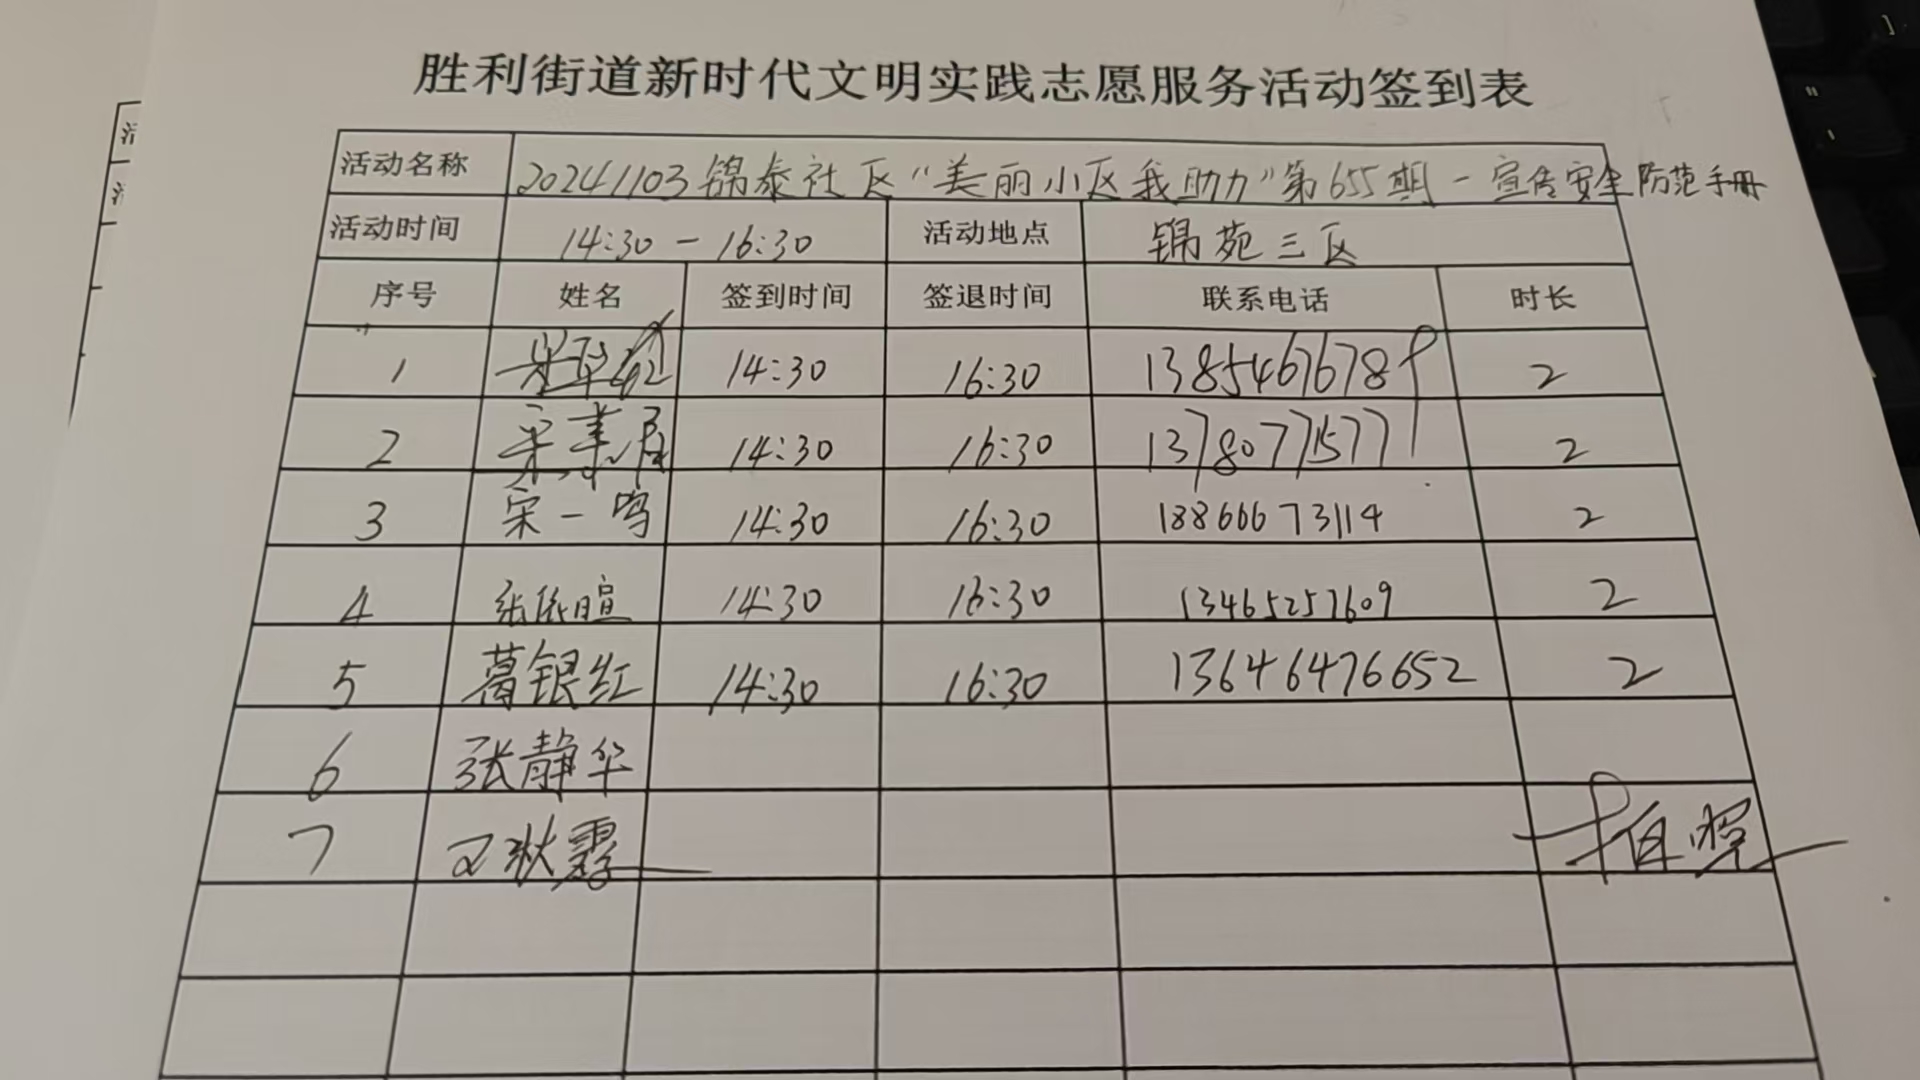 胜利街道新时代文明实践志愿服务活动签到表
活动名称 20241103锦泰社区“美丽小区我助力”第655期-宣传安全防范手册
活动时间 14:30-16:30 活动地点 锦苑三区
序号 姓名 签到时间 签退时间 联系电话 时长
1 14:30 16:30 13854676789 2
2 14:30 16:30 13780771577 2
3 宋一鸣 14:30 16:30 18866673114 2
4 张依暄 14:30 16:30 13465257609 2
5 葛银红 14:30 16:30 13646476652 2
6 张静华
7